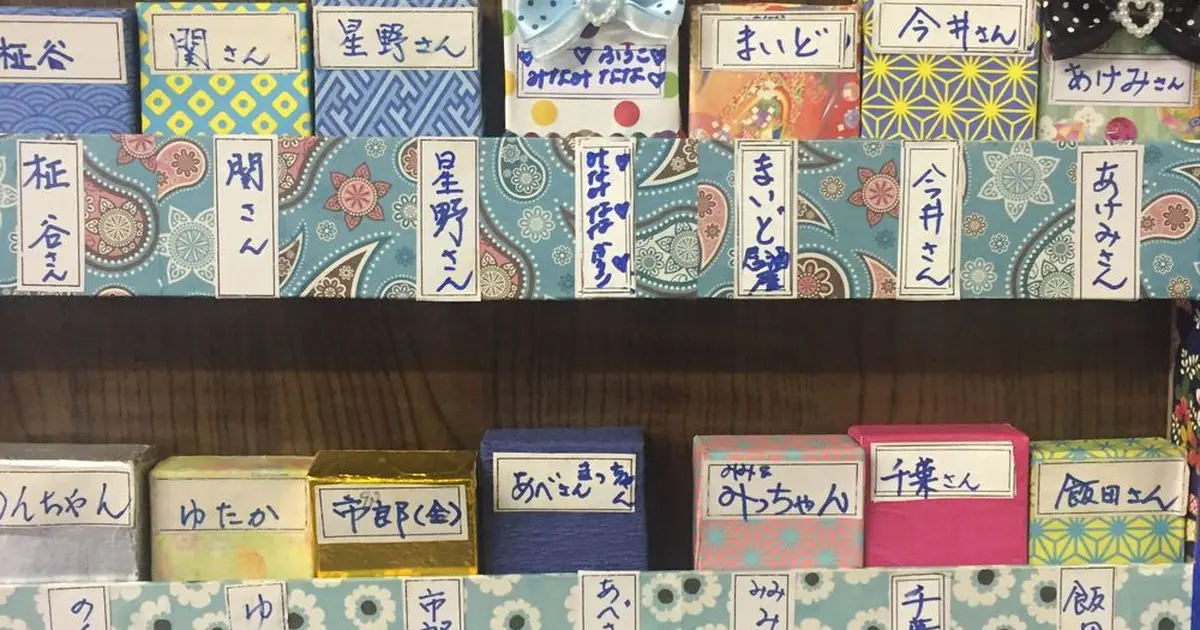 柾谷
関さん
星野さん
ふうこ
みなみ なな
まいど
今井さん
あけみさん
柾谷さん
関さん
星野さん
まいど
今井さん
あけみさん
のんちゃん
ゆたか
市郎(金)
あべさん まっちゃん
みみ&
みっちゃん
千葉さん
飯田さん
の
ゆ
市
あべさ
みみ
千葉
飯田